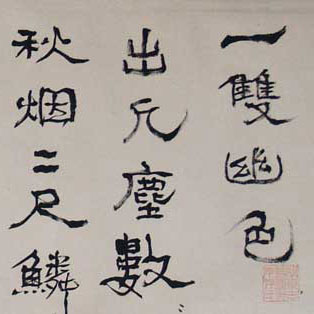 一雙幽色
出凡塵數
秋烟二尺鱗